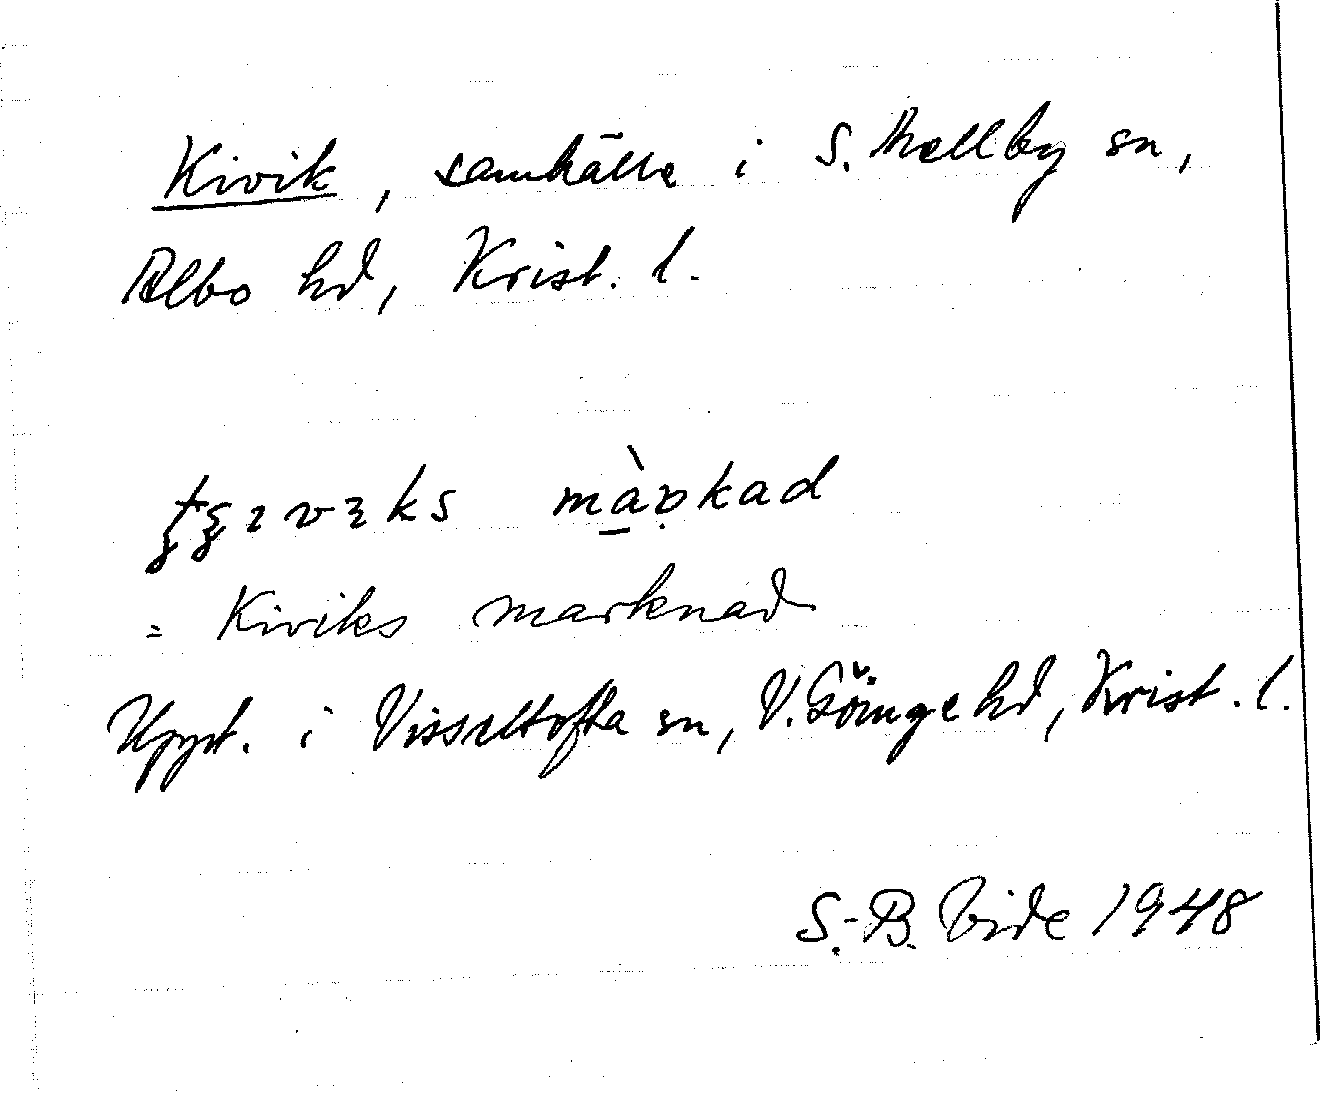 Kivik, samhälle i S. Mellby sn,
Albo hd, Krist. l.
màrkad
= Kiviks marknad
Uppt. i Visseltofta sn, V. Göinge hd, Krist. l.
S.-B. Vide 1948